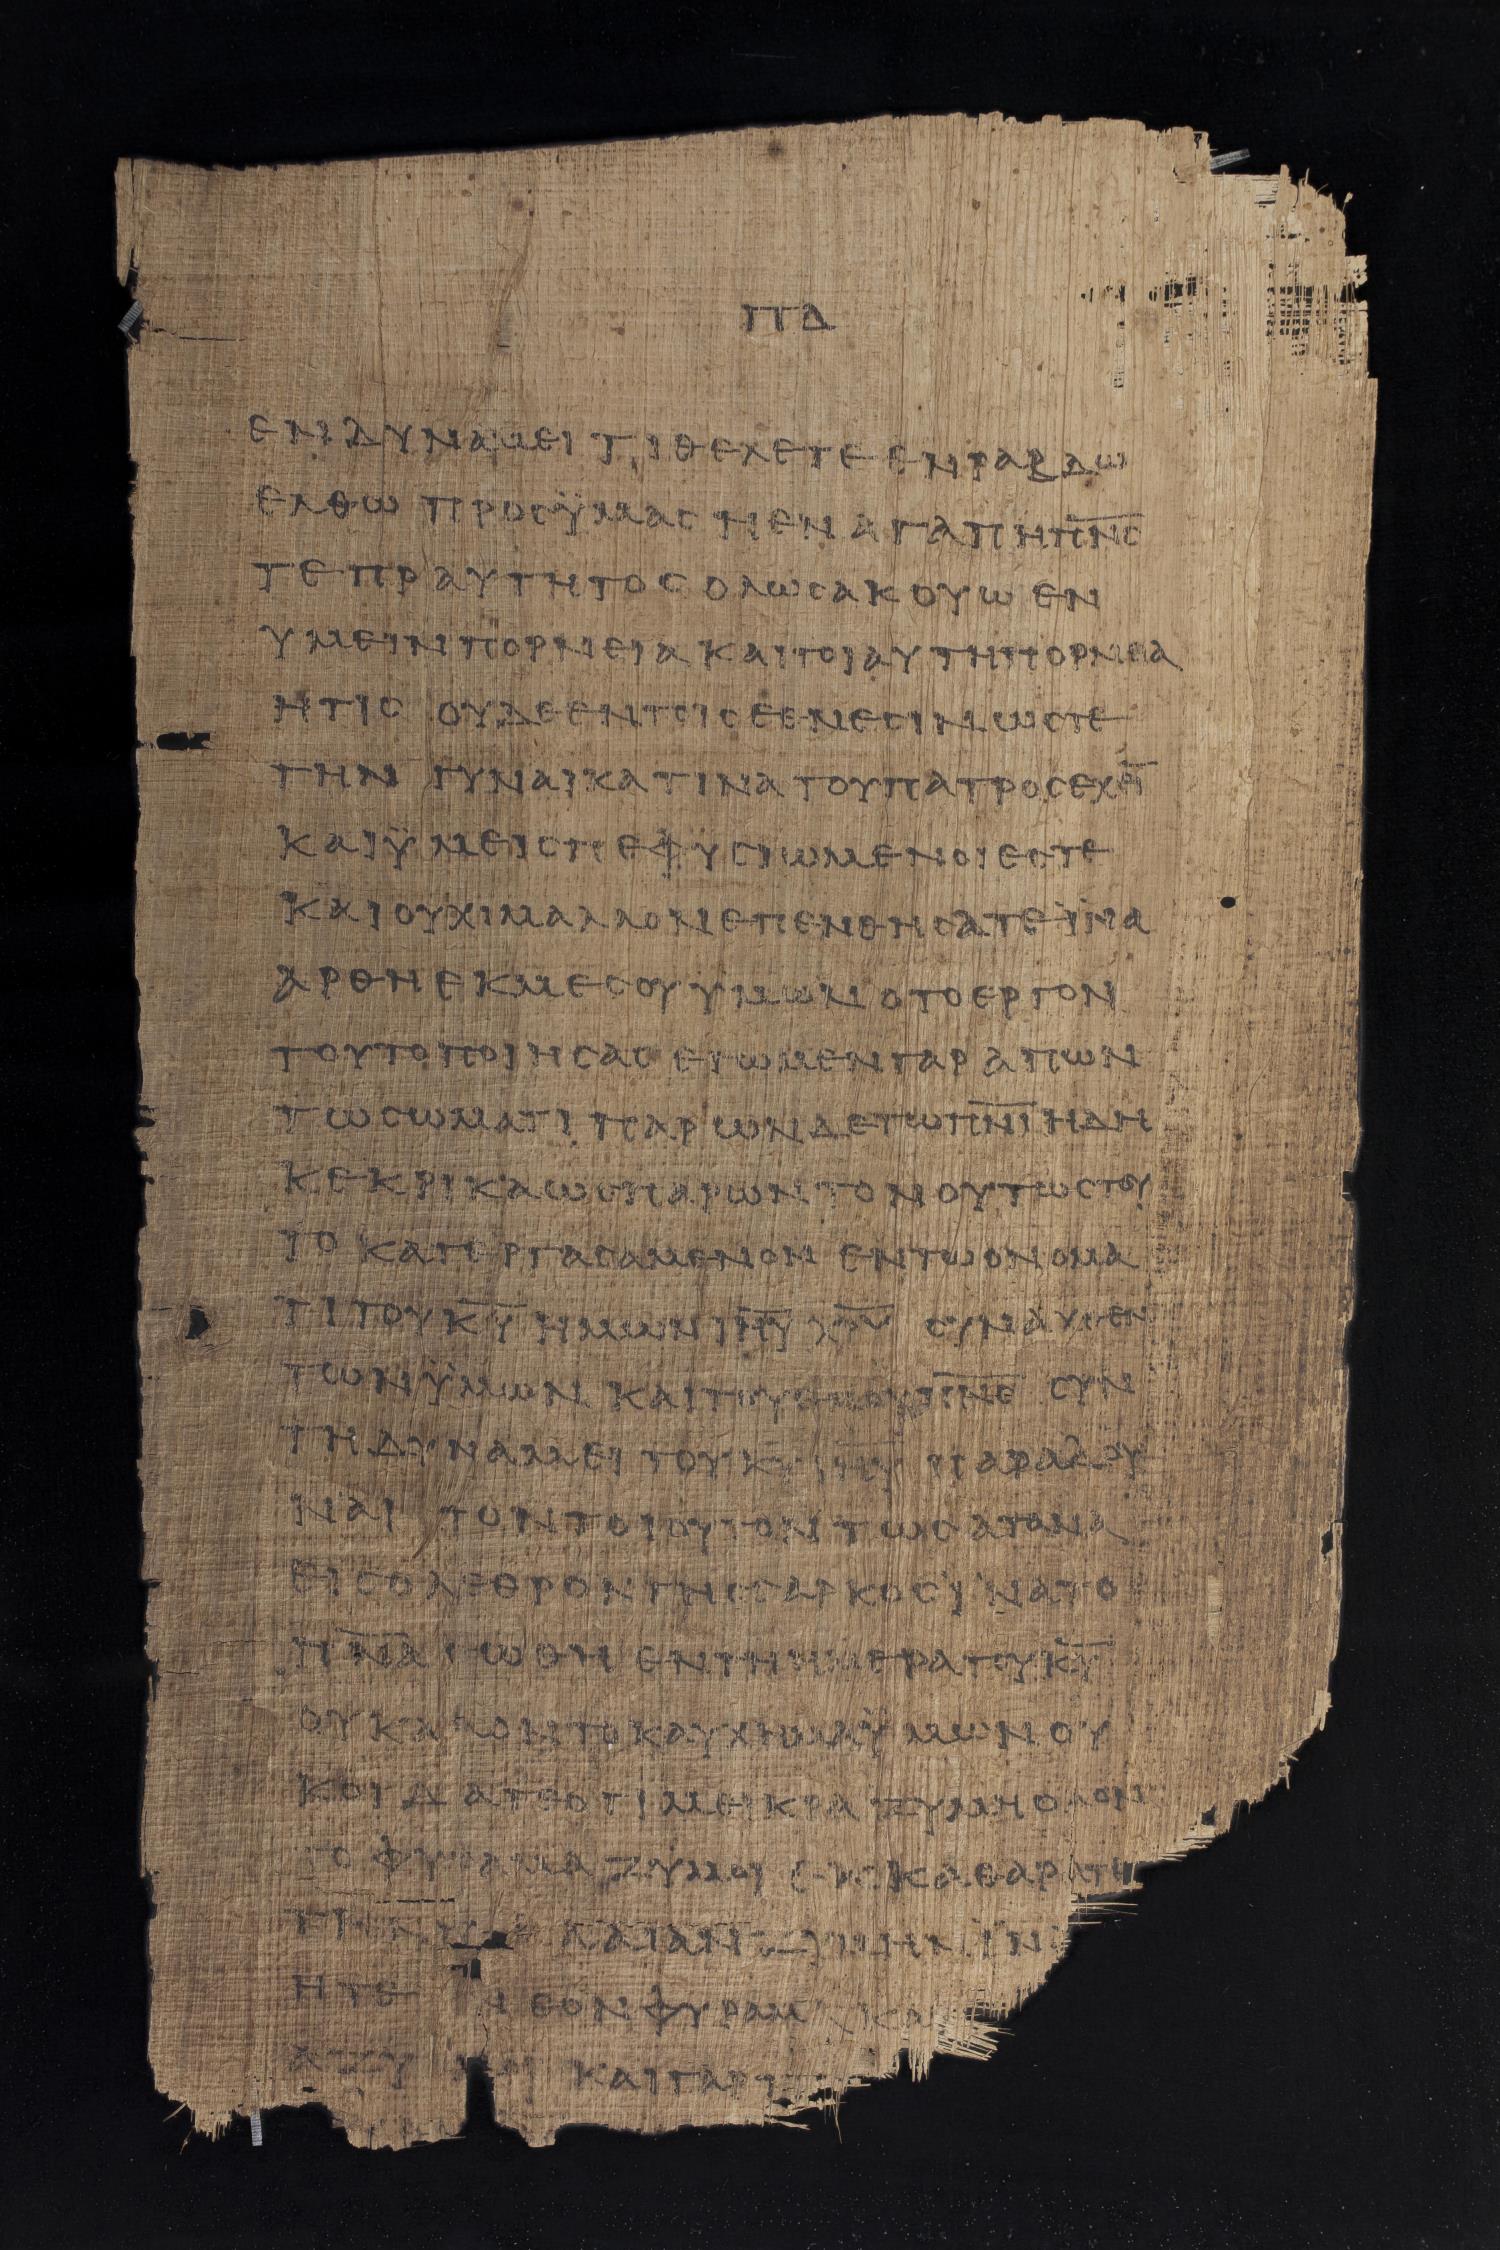 ΠΔ
ΕΝ ΔΥΝΑΜΕΙ ΤΙ ΘΕΛΕΤΕ ΕΝ ΡΑΒΔΩ
ΕΛΘΩ ΠΡΟΣ ΫΜΑΣ Η ΕΝ ΑΓΑΠΗ Π̅Ν̅Ϲ̅
ΤΕ ΠΡΑΥΤΗΤΟϹ ΟΛΩϹ ΑΚΟΥΩ ΕΝ
ΥΜΕΙΝ ΠΟΡΝΕΙΑ ΚΑΙ ΤΟΙΑΥΤΗ ΠΟΡΝΕΙΑ
ΗΤΙϹ ΟΥΔΕ ΕΝ ΤΟΙϹ ΕΘΝΕϹΙΝ ΩϹΤΕ
ΤΗΝ ΓΥΝΑΙΚΑ ΤΙΝΑ ΤΟΥ ΠΑΤΡΟϹ ΕΧΕΙ̅
ΚΑΙ ΫΜΕΙϹ ΠΕΦΥϹΙΩΜΕΝΟΙ ΕϹΤΕ
ΚΑΙ ΟΥΧΙ ΜΑΛΛΟΝ ΕΠΕΝΘΗϹΑΤΕ ΪΝΑ
ΑΡΘΗ ΕΚ ΜΕϹΟΥ ΥΜΩΝ Ο ΤΟ ΕΡΓΟΝ
ΤΟΥΤΟ ΠΟΙΗϹΑϹ ΕΓΩ ΜΕΝ ΓΑΡ ΑΠΩΝ
ΤΩ ϹΩΜΑΤΙ ΠΑΡΩΝ ΔΕ ΤΩ Π̅Ν̅Ι̅ ΗΔΗ
ΚΕΚΡΙΚΑ ΩϹ ΠΑΡΩΝ ΤΟΝ ΟΥΤΩϹ ΤΟΥ
ΤΟ ΚΑΤΕΡΓΑϹΑΜΕΝΟΝ ΕΝ ΤΩ ΟΝΟΜΑ
ΤΙ ΤΟΥ Κ̅Υ̅ ΗΜΩΝ Ι̅Η̅Υ̅ Χ̅Ρ̅Υ̅ ϹΥΝΑΧΘΕΝ
ΤΩΝ ΫΜΩΝ ΚΑΙ ΤΟΥ ΕΜΟΥ Π̅Ν̅Ϲ̅ ϹΥΝ
ΤΗ ΔΥΝΑΜΕΙ ΤΟΥ Κ̅Υ̅ Ι̅Η̅Υ̅ ΠΑΡΑΔΟΥ
ΝΑΙ ΤΟΝ ΤΟΙΟΥΤΟΝ ΤΩ ϹΑΤΑΝΑ
ΕΙϹ ΟΛΕΘΡΟΝ ΤΗϹ ϹΑΡΚΟϹ ΪΝΑ ΤΟ
Π̅Ν̅Α̅ ϹΩΘΗ ΕΝ ΤΗ ΗΜΕΡΑ ΤΟΥ Κ̅Υ̅
ΟΥ ΚΑΛΟΝ ΤΟ ΚΑΥΧΗΜΑ ΫΜΩΝ ΟΥ
Κ ΟΙΔΑΤΕ ΟΤΙ ΜΕΙΚΡΑ ΖΥΜΗ ΟΛΟΝ
ΤΟ ΦΥΡΑΜΑ ΖΥΜΟΙ ΕΚΚΑΘΑΡΑΤΕ
ΤΗΝ ΠΑΛΑΙΑΝ ΖΥΜΗΝ ΪΝ
ΗΤΕ ΝΕΟΝ ΦΥΡΑΜ ΚΑ
ΑΖΥΜΟΙ ΚΑΙ ΓΑΡ Τ